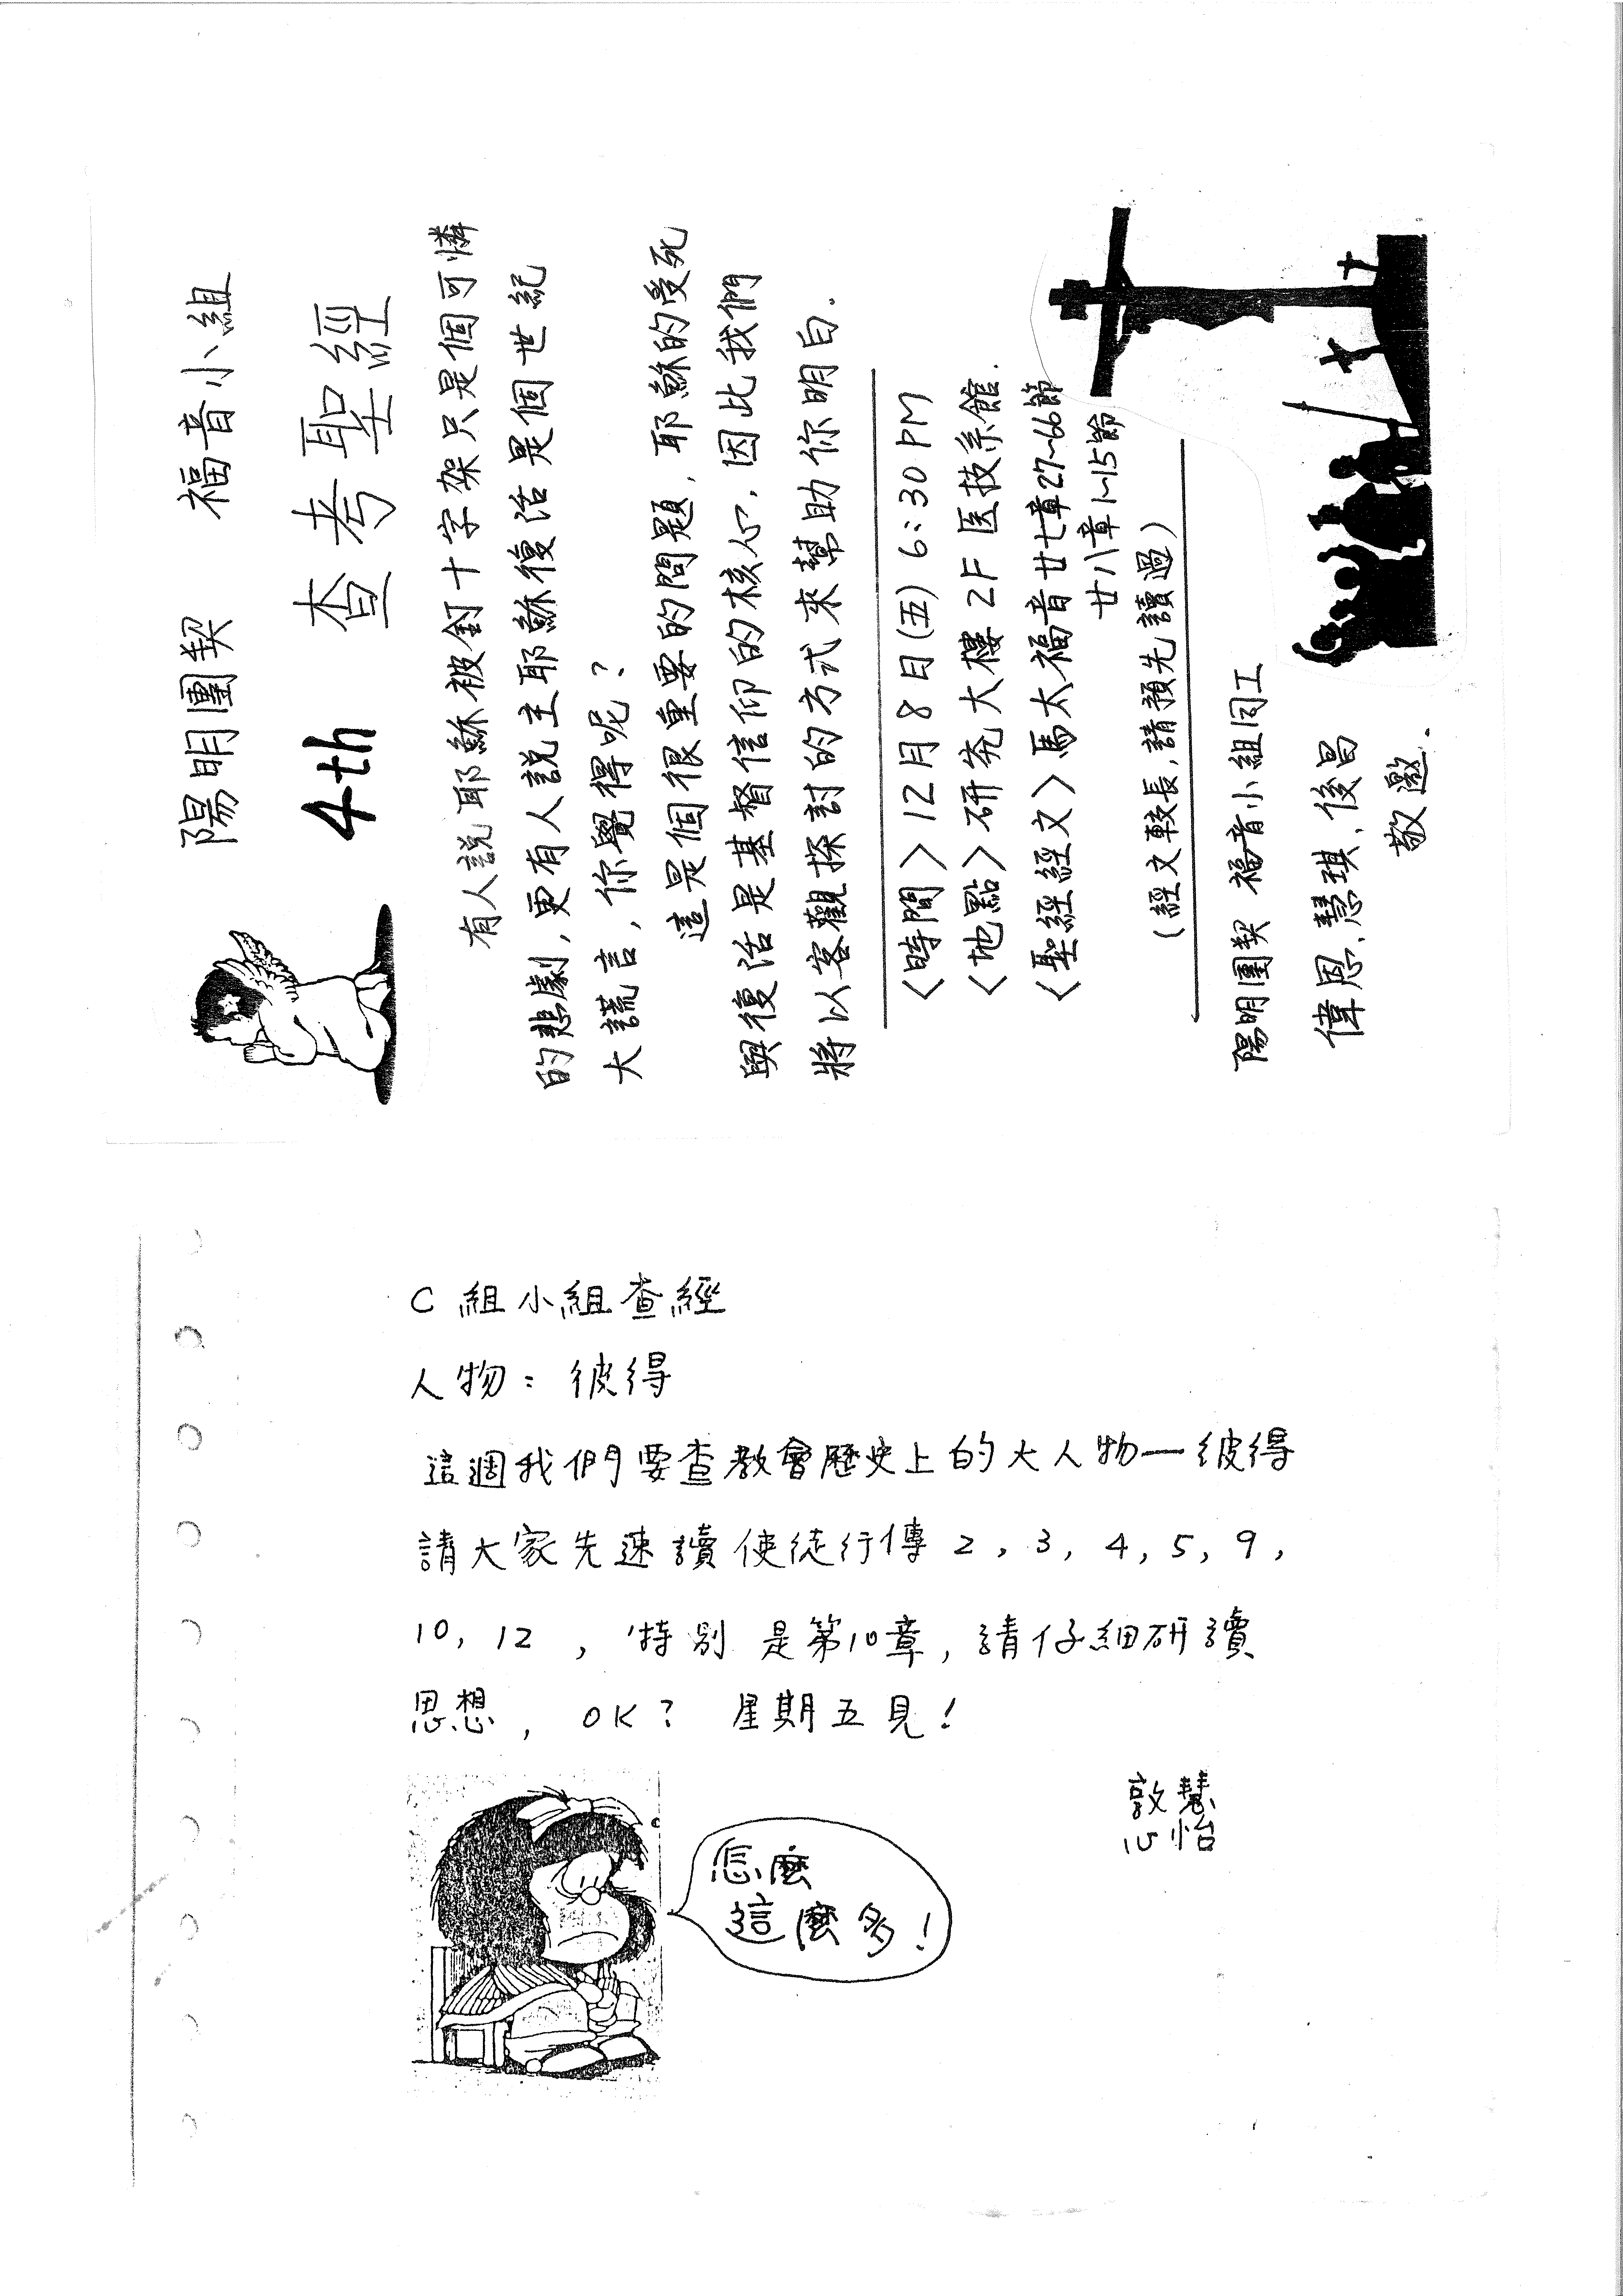 陽明團契 福音小組
4th 查考聖經
有人說耶穌被釘十字架只是個可憐
的悲劇,更有人說主耶穌復活是個世紀
大謊言,你覺得呢?
這是個很重要的問題,耶穌的受死
與復活是基督信仰的核心,因此我們
將以客觀探討的方式來幫助你明白.
<時間>12月8日(五)6:30PM
<地點>研究大樓2F医技系館.
<聖經經文>馬太福音廿七章27~66節
廿八章1~15節
(經文較長,請預先讀過)
陽明團契 福音小組同工
偉恩、慧琪、俊昌
敬邀.
C組小組查經
人物:彼得
這週我們要查教會歷史上的大人物—彼得
請大家先速讀使徒行傳2,3,4,5,9,
10,12,特別是第10章,請仔細研讀
思想,OK?星期五見!
敦慧
心怡
怎麼
這麼多!